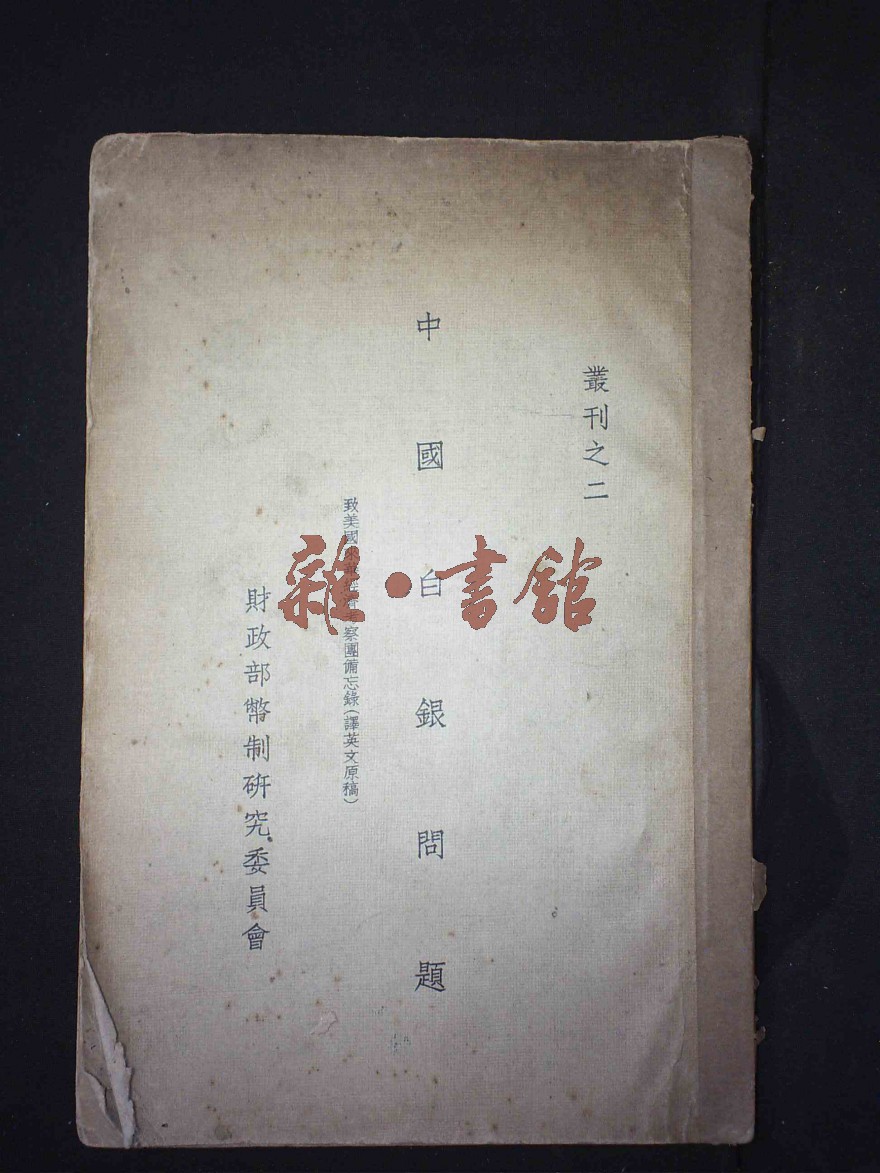 叢刊之二
中國白銀問題
致美國來華經濟考察團備忘錄(譯英文原稿)
財政部幣制硏究委員會
雜·書館